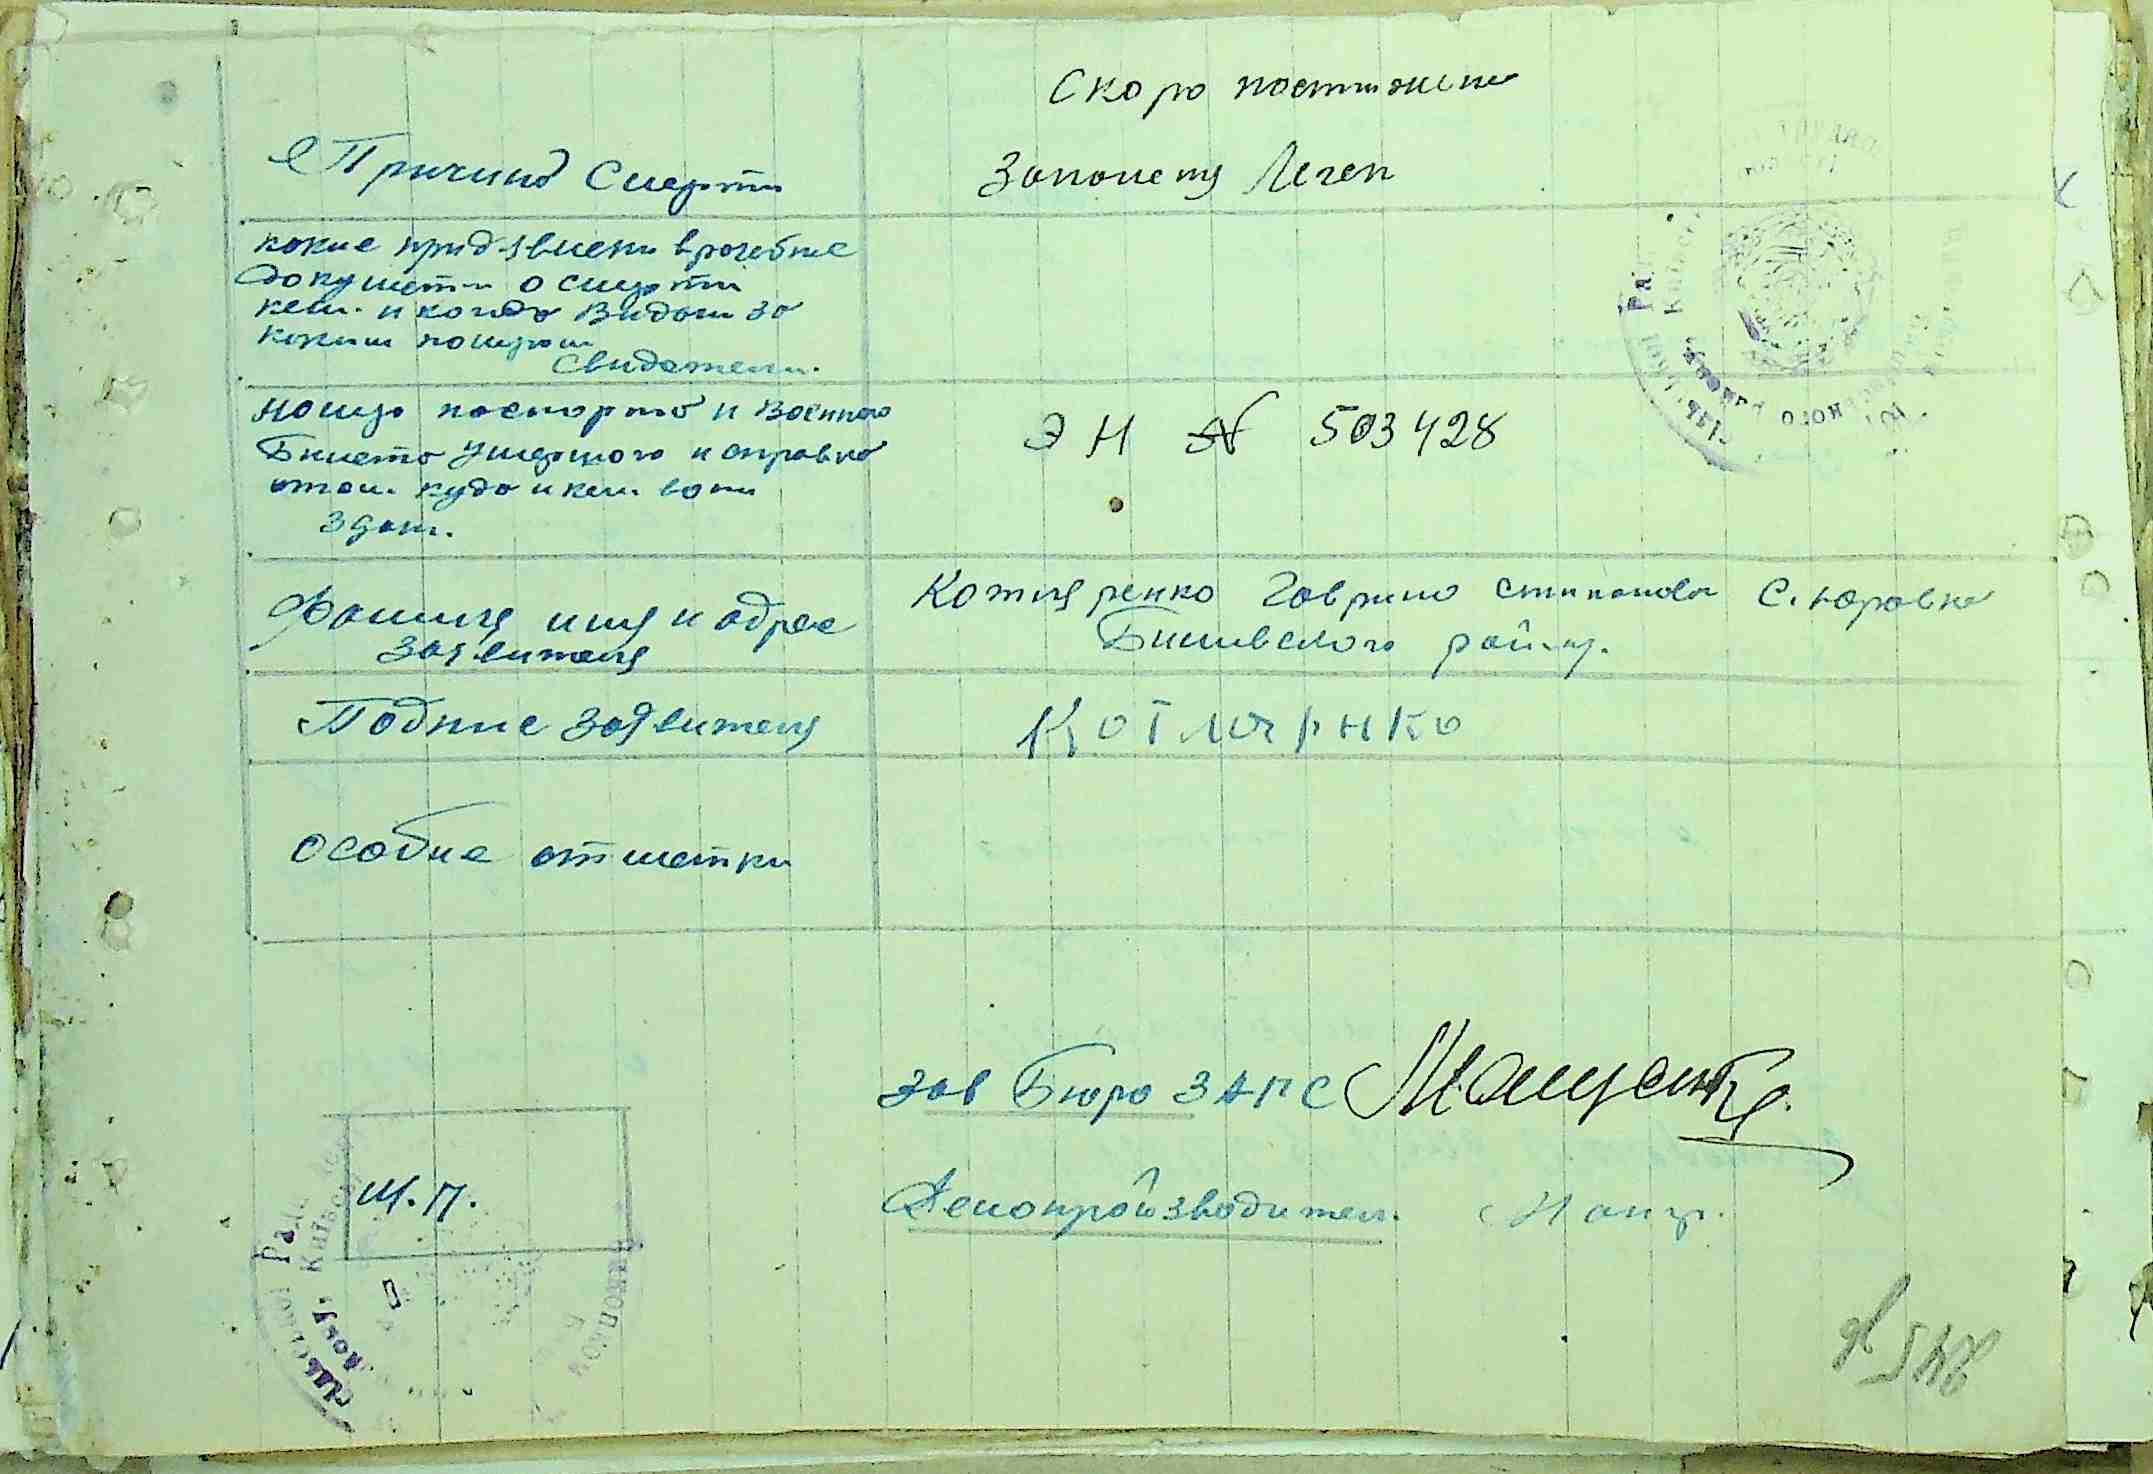 Скоро постижне
е Причина Смерти
Запалення Леген
какие придявлени врачебние
документи о смерти
кем. и когда Видан за
каким номером
Свидетели.
номер паспорта и военого
Билета умершого и справка
отом. куда и кем вони
здан.
Э Н № 503428
Фамиля имя и адрес
заявителя
Котляренко Гаврило Стипанови С. Юровка
Бишивского район.
Подпис заявителя
Котлярнко
особие отметки
Зав Бюро ЗАГС
Делопройзводител.
М.П.